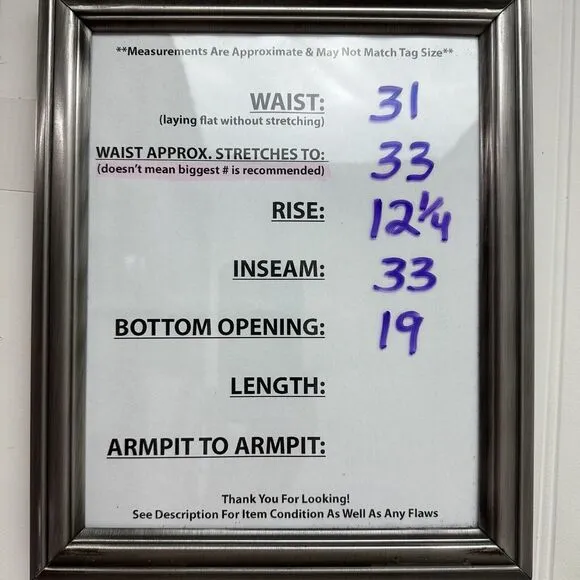 **Measurements Are Approximate & May Not Match Tag Size**
WAIST: 31
(laying flat without stretching)
WAIST APPROX. STRETCHES TO: 33
(doesn't mean biggest # is recommended)
RISE: 12 1/4
INSEAM: 33
BOTTOM OPENING: 19
LENGTH:
ARMPIT TO ARMPIT:
Thank You For Looking!
See Description For Item Condition As Well As Any Flaws